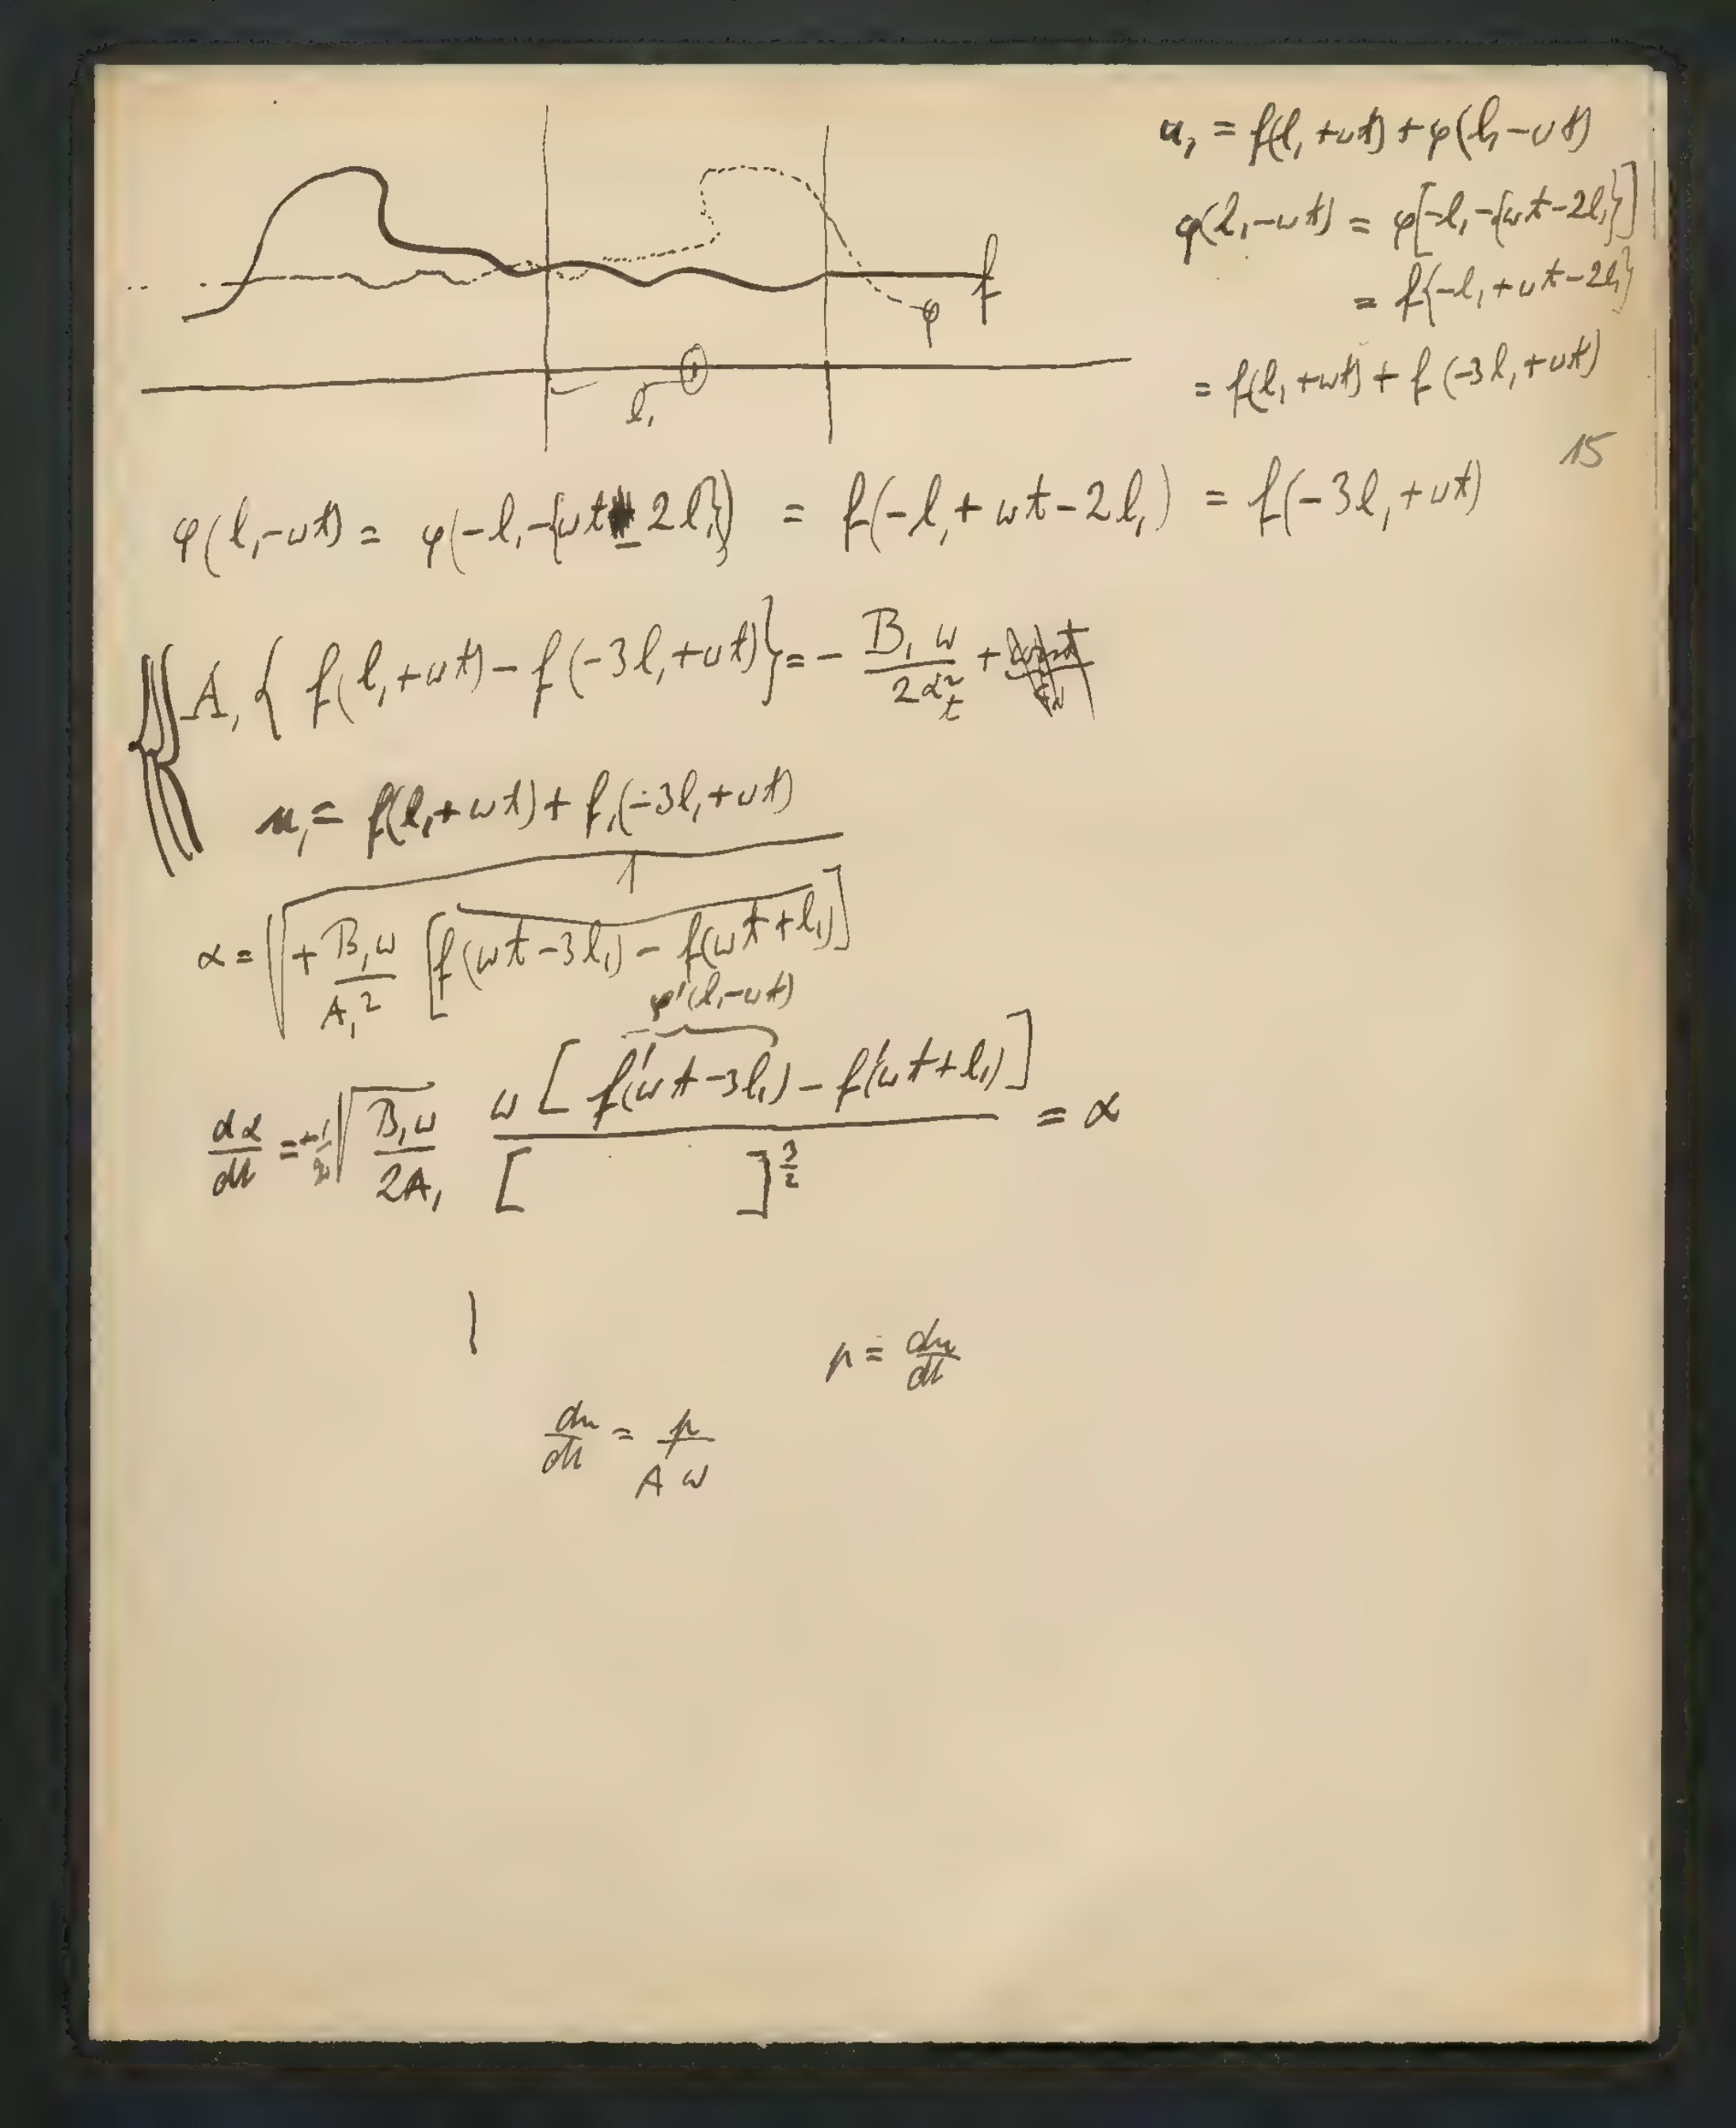 u₁ = f(l₁ + ωt) + φ(l₁ − ωt)
φ(l₁ − ωt) = φ[−l₁ − {ωt − 2l₁}]
= f{−l₁ + ωt − 2l₁}
= f(l₁ + ωt) + f(−3l₁ + ωt)
f
φ
l₁
15
φ(l₁ − ωt) = φ(−l₁ − {ωt − 2l₁}) = f(−l₁ + ωt − 2l₁) = f(−3l₁ + ωt)
A₁ { f(l₁ + ωt) − f(−3l₁ + ωt) } = − B₁ω / 2α²ₜ +
u₁ = f(l₁ + ωt) + f₁(−3l₁ + ωt)
α = √( + B₁ω / A₁2 · 1 / [f(ωt − 3l₁) − f(ωt + l₁)] )
φ'(l₁ − ωt)
dα/dt = + 1/2 √(B₁ω / 2A₁) ω [ f'(ωt − 3l₁) − f'(ωt + l₁) ] / [ ]^(3/2) = α
p = du/dt
du/dt = p / A ω